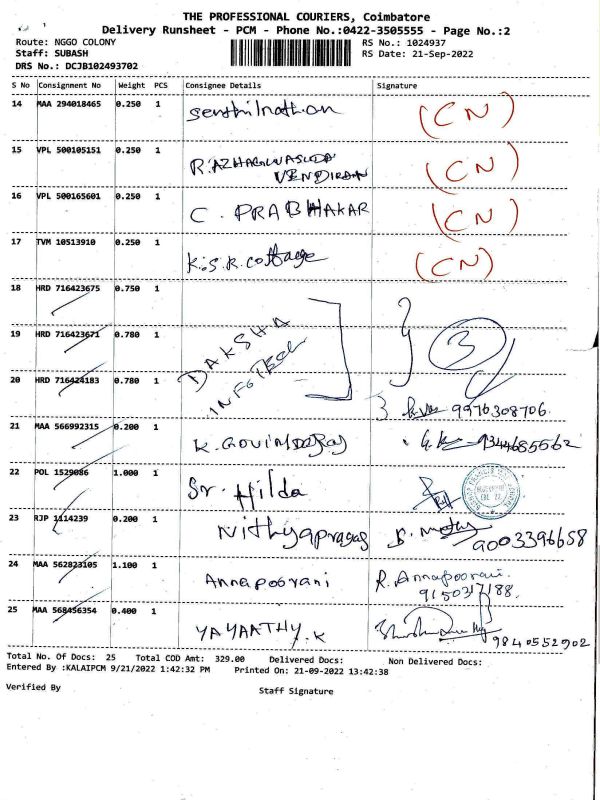 THE PROFESSIONAL COURIERS, Coimbatore
Delivery Runsheet - PCM - Phone No.:0422-3505555 - Page No.:2
Route: NGGO COLONY
RS No.: 1024937
Staff: SUBASH
RS Date: 21-Sep-2022
DRS No.: DCJB102493702
S No Consignment No Weight PCS Consignee Details Signature
14 MAA 294018465 0.250 1 Senthilnathan (CN)
15 VPL 500105151 0.250 1 (CN)
16 VPL 500165601 0.250 1 C. PRABHAKAR (CN)
17 TVM 10513910 0.250 1 K.S.R. cottage (CN)
18 HRD 716423675 0.750 1
19 HRD 716423671 0.780 1 DAKSHA INFOTECH 3
20 HRD 716424183 0.780 1 9976308706
21 MAA 566992315 0.200 1 K. GOVINDARAJ 9344685562
22 POL 1529086 1.000 1 Sr. Hilda
23 RJP 1114239 0.200 1 Nithyapragas 9003396658
24 MAA 562823105 1.100 1 Annapoorani R. Annapoorani.
9150317188.
25 MAA 568456354 0.400 1 YAYAATHY.K 9840552902
Total No. Of Docs: 25 Total COD Amt: 329.00 Delivered Docs: Non Delivered Docs:
Entered By :KALAIPCM 9/21/2022 1:42:32 PM Printed On: 21-09-2022 13:42:38
Verified By Staff Signature